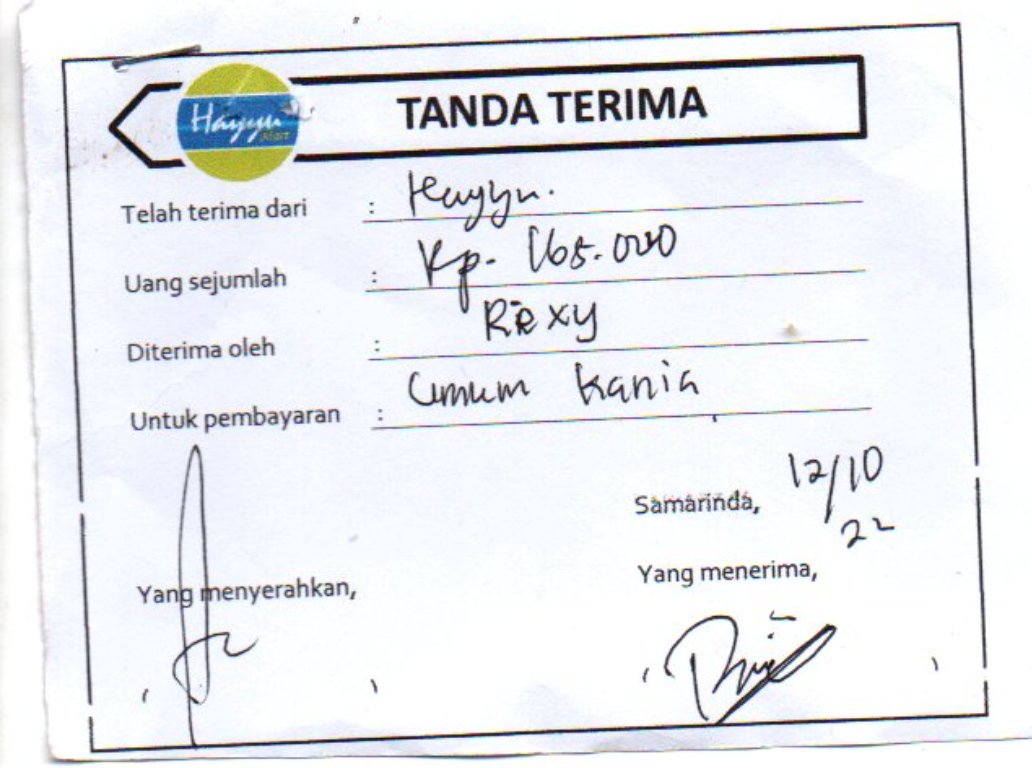 Hayyu Mart
TANDA TERIMA
Telah terima dari : Hayyu.
Uang sejumlah : Rp. 165.000
Diterima oleh : Rexy
Untuk pembayaran : Umum Kania
Samarinda, 12/10
22
Yang menyerahkan,
Yang menerima,